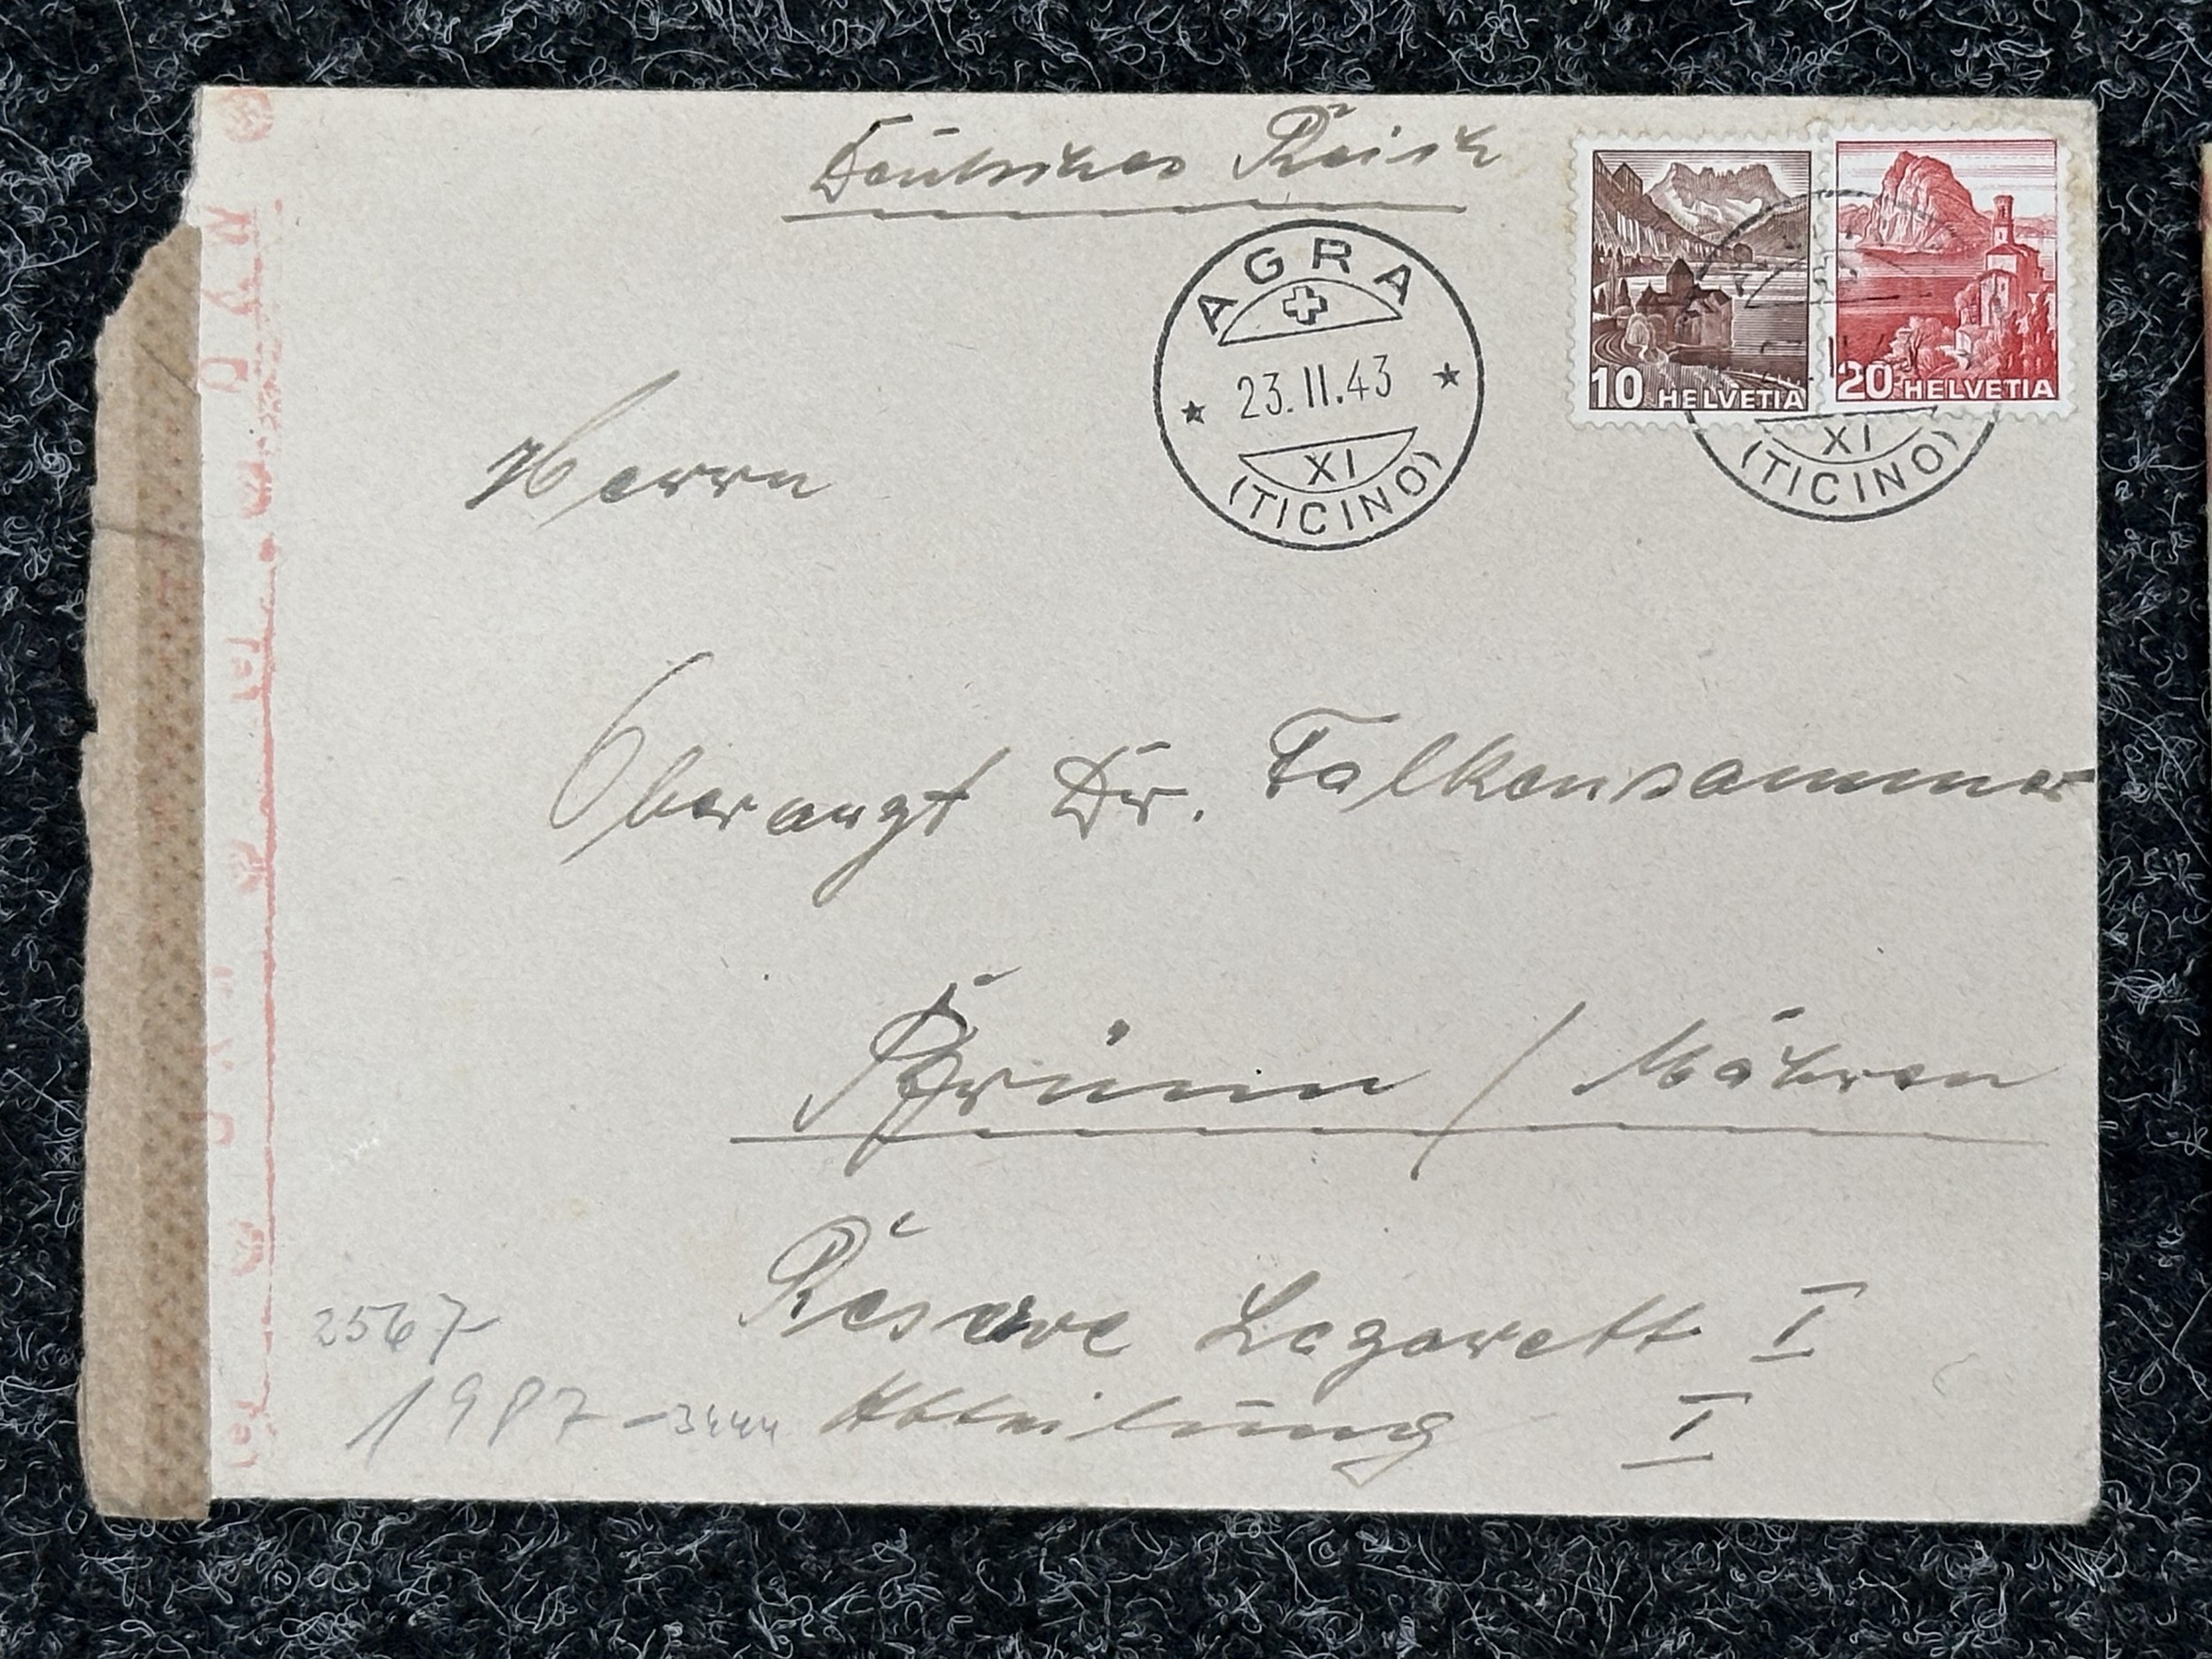 Deutsches Reich
AGRA
23.II.43
XI
(TICINO)
10 HELVETIA
20 HELVETIA
XI
(TICINO)
Herrn
Oberarzt Dr. Falkensammer
Brünn / Mähren
Reserve Lazarett I
Abteilung I
2567
1987 -